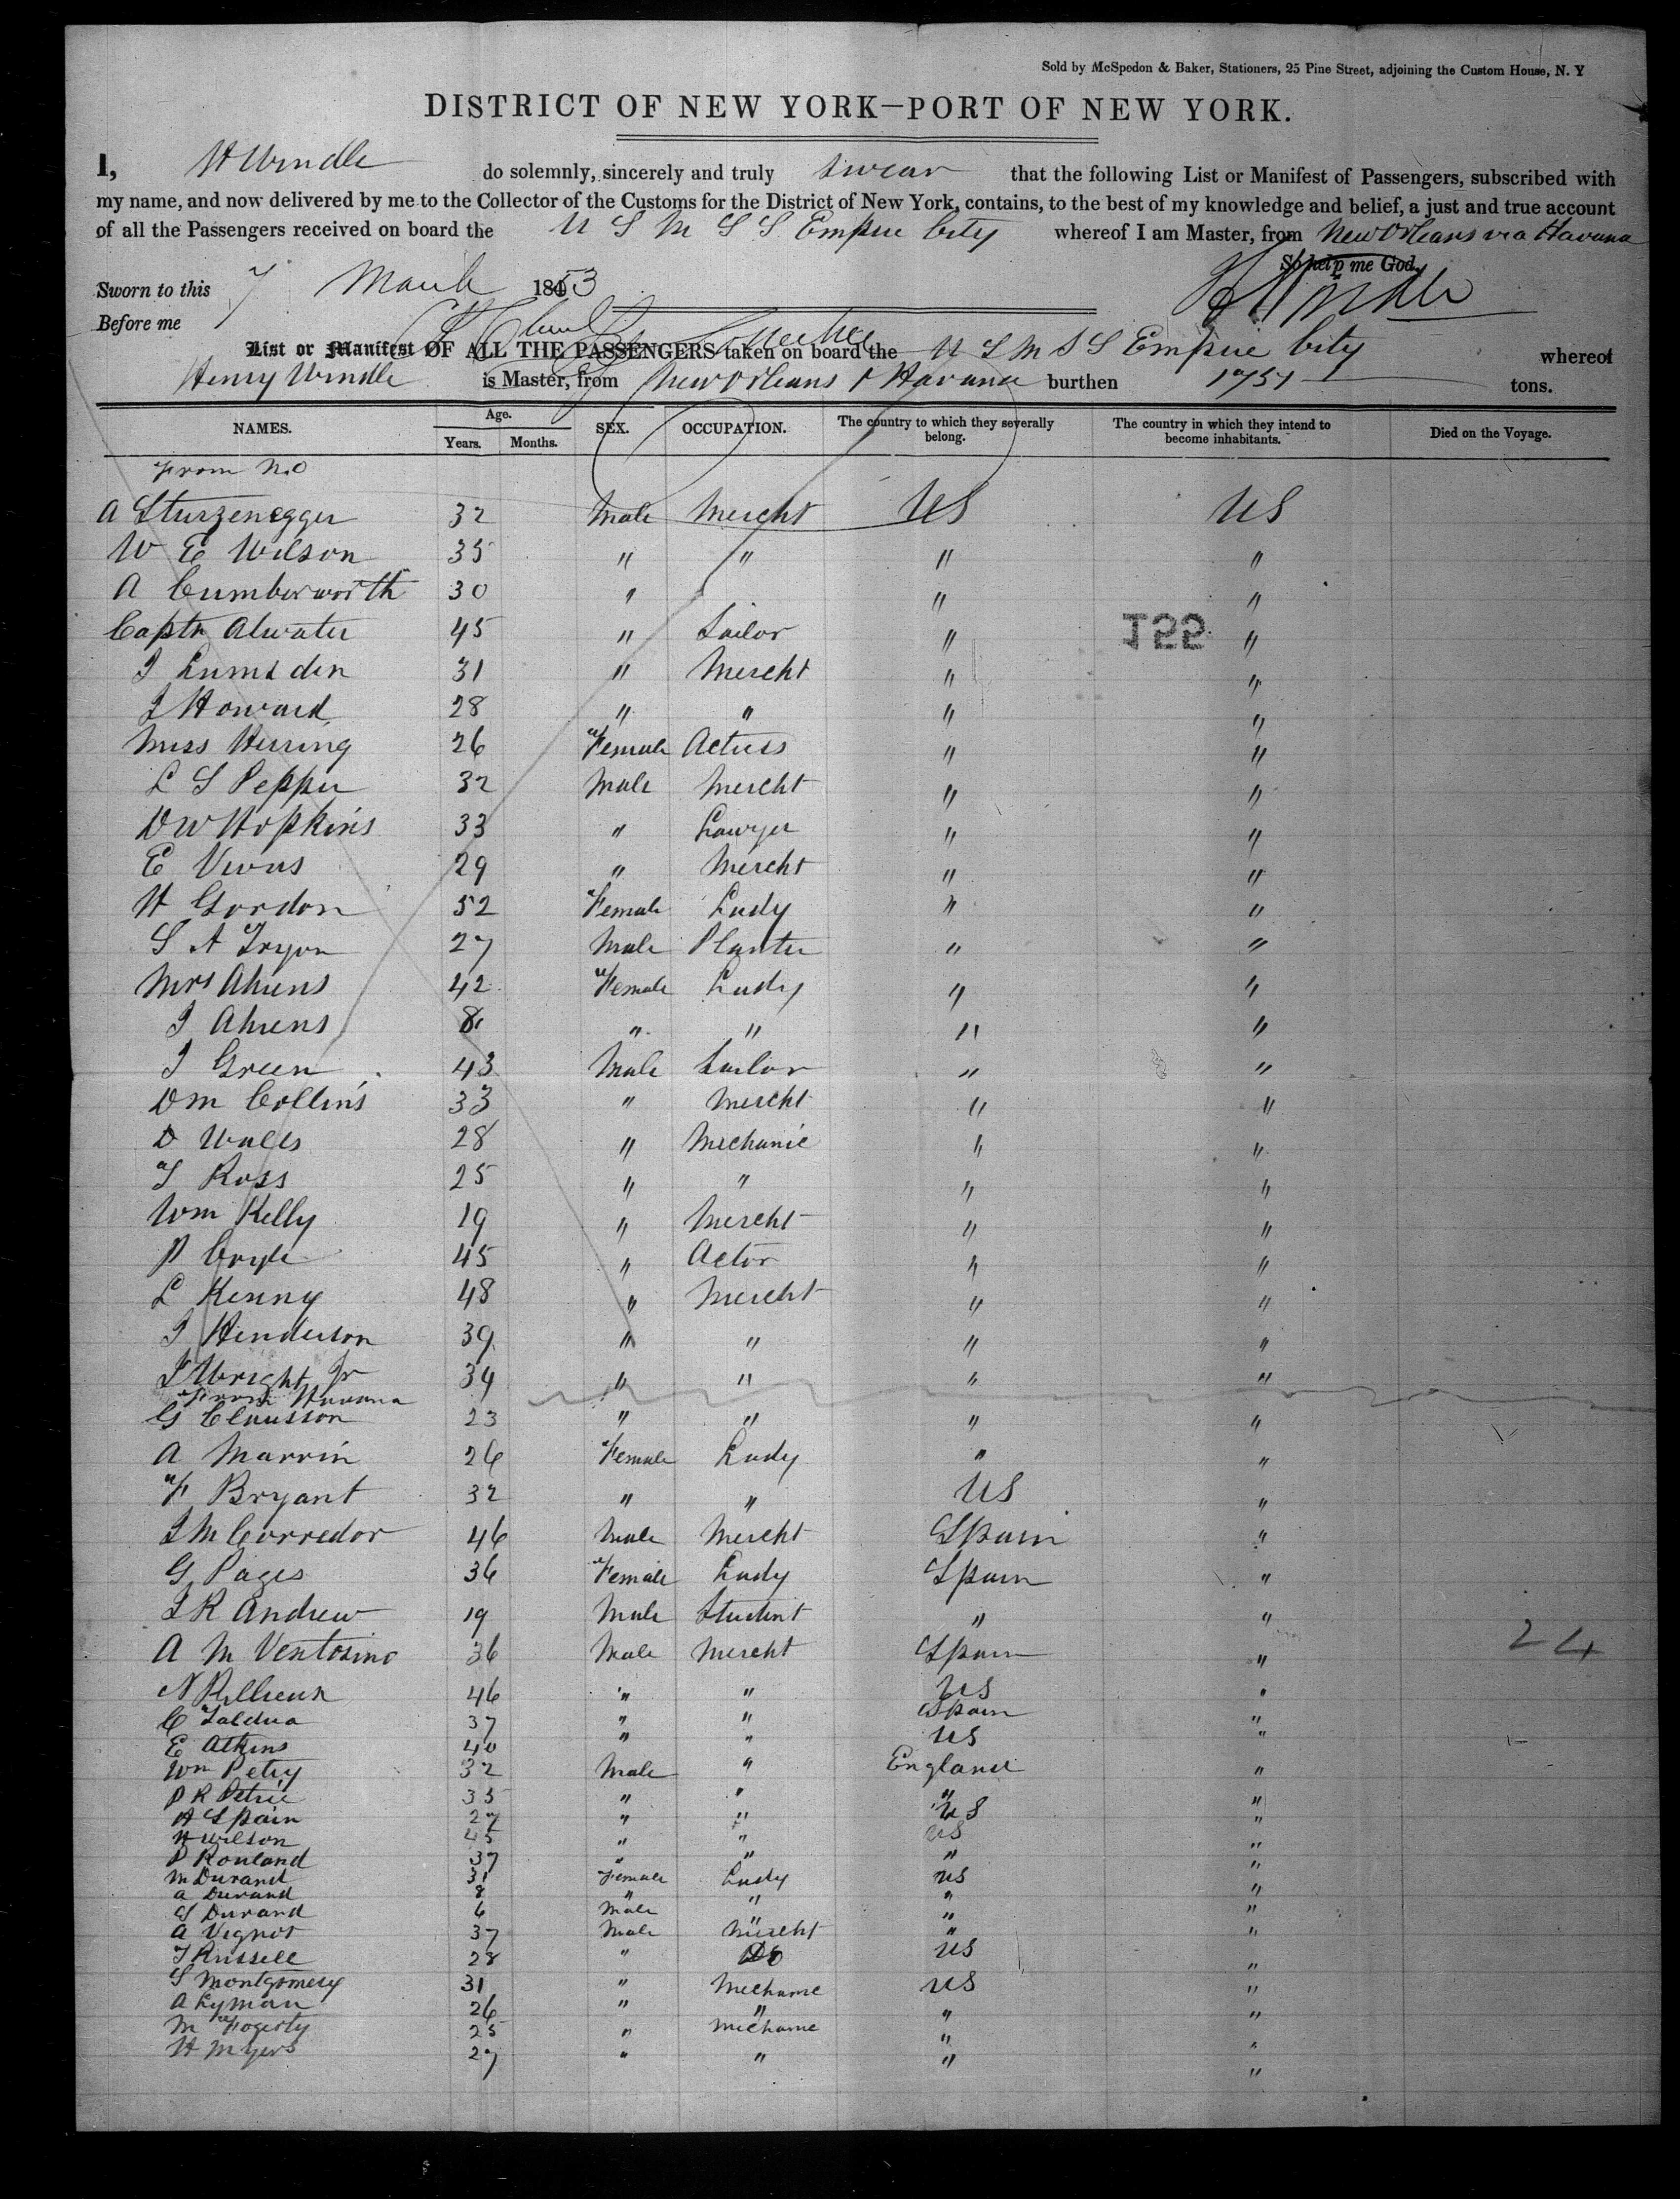 Sold by McSpedon & Baker, Stationers, 25 Pine Street, adjoining the Custom House, N. Y
DISTRICT OF NEW YORK—PORT OF NEW YORK.
I, H Windle do solemnly, sincerely and truly swear that the following List or Manifest of Passengers, subscribed with
my name, and now delivered by me to the Collector of the Customs for the District of New York, contains, to the best of my knowledge and belief, a just and true account
of all the Passengers received on board the U S M S S Empire City whereof I am Master, from New Orleans via Havana
So help me God.
Sworn to this 7 March 1853 H Windle
Before me
List or Manifest OF ALL THE PASSENGERS taken on board the U S M S S Empire City whereof
Henry Windle is Master, from New Orleans & Havana burthen 1751 tons.
NAMES. Age. Years. Months. SEX. OCCUPATION. The country to which they severally belong. The country in which they intend to become inhabitants. Died on the Voyage.
From N.O
A Sturzenegger 32 Male Mercht US US
W E Wilson 35 " " " "
A Cumberworth 30 " " "
Captn Atwater 45 " Sailor " "
155
J Lumsden 31 " Mercht " "
J Howard 28 " " " "
Miss Herring 26 Female Actress " "
L S Pepper 32 Male Mercht " "
D W Hopkins 33 " Lawyer " "
E Vivus 29 " Mercht " "
H Gordon 52 Female Lady " "
S A Tryon 27 Male Planter " "
Mrs Ahrens 42 Female Lady " "
J Ahrens 8 " " " "
J Green 43 Male Sailor " "
D M Collins 33 " Mercht " "
D Walls 28 " Mechanic " "
T Ross 25 " " " "
Wm Kelly 19 " Mercht " "
P Coyle 45 " Actor " "
L Kenny 48 " Mercht " "
J Henderson 39 " " " "
J Wright Jr 34 " " " "
From Havana
G Clausson 23 " " " "
A Marrin 26 Female Lady " "
F Bryant 32 " " US "
J M Corredor 46 Male Mercht Spain "
G Pages 36 Female Lady Spain "
J R Andrew 19 Male Student " "
A M Ventosino 36 Male Mercht Spain " 24
N Rillieux 46 " " US "
C Taldua 37 " " Spain "
E Atkins 40 " " US "
Wm Petry 32 Male " England "
P R Petrie 35 " " " "
H Spain 27 " " US "
H Wilson 45 " " US "
P Rouland 37 " " " "
M Durand 31 Female Lady US "
A Durand 8 " " " "
G Durand 6 Male " " "
A Vignot 37 Male Mercht " "
T Russell 28 " Do US "
S Montgomery 31 " Mechanic US "
A Lyman 26 " " " "
M Fogerty 25 " Mechanic " "
H Myers 27 " " " "